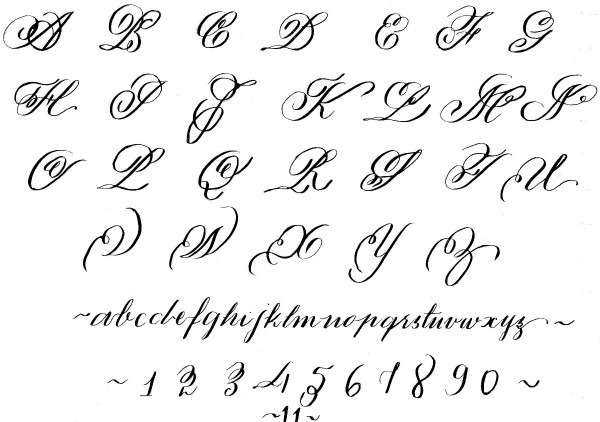 A B C D E F G
H I J K L M N
O P Q R S T U
V W X Y Z
~abcdefghijklmnopqrstuvwxyz~
~ 1 2 3 4 5 6 7 8 9 0 ~
~11~